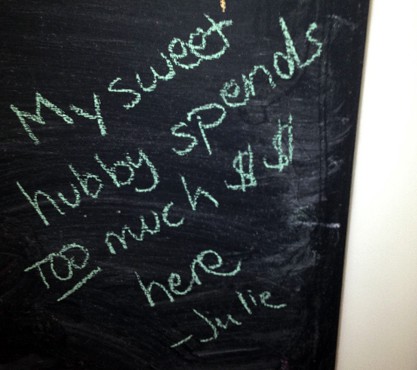 My sweet
hubby spends
TOO much $$
here
-Julie